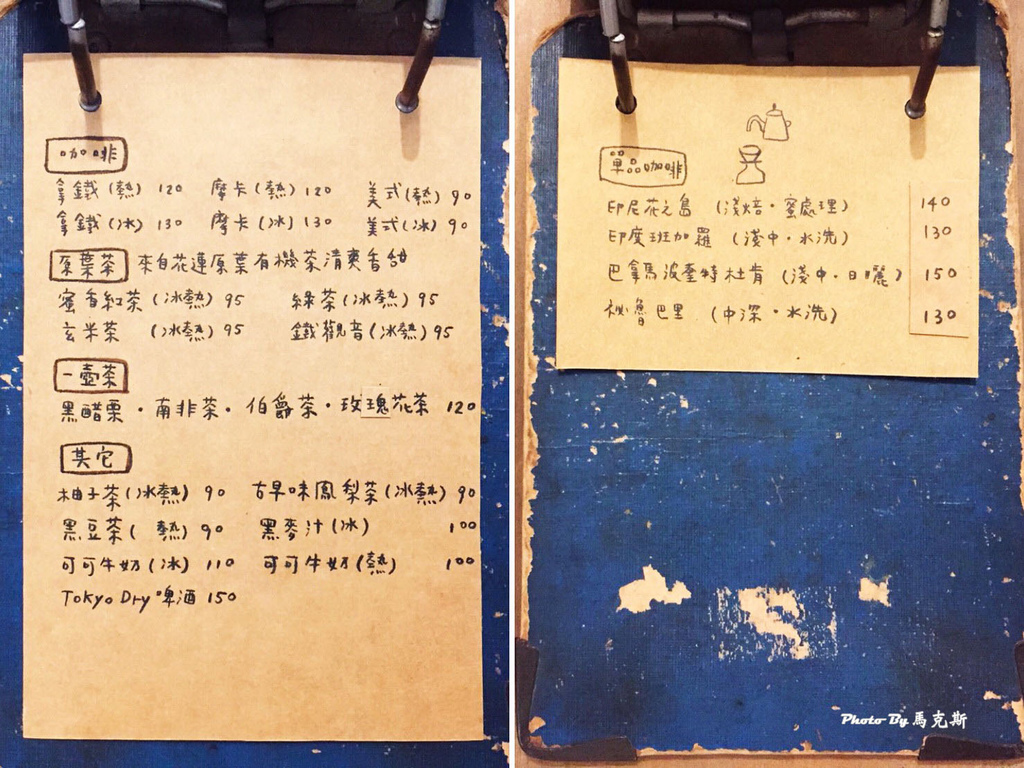 咖啡
拿鐵(熱) 120 摩卡(熱) 120 美式(熱) 90
拿鐵(冰) 130 摩卡(冰) 130 美式(冰) 90
原葉茶 來自花蓮原葉有機茶清爽香甜
蜜香紅茶(冰熱) 95 綠茶(冰熱) 95
玄米茶 (冰熱) 95 鐵觀音(冰熱) 95
一壺茶
黑醋栗・南非茶・伯爵茶・玫瑰花茶 120
其它
柚子茶(冰熱) 90 古早味鳳梨茶(冰熱) 90
黑豆茶( 熱) 90 黑麥汁(冰) 100
可可牛奶(冰) 110 可可牛奶(熱) 100
Tokyo Dry 啤酒 150
單品咖啡
印尼花之島 (淺焙・蜜處理) 140
印度班加羅 (淺中・水洗) 130
巴拿馬波奎特杜肯 (淺中・日曬) 150
祕魯巴里 (中深・水洗) 130
Photo By 馬克斯